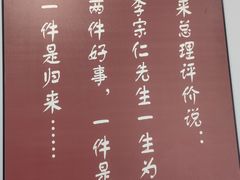 来总理评价说：
李宗仁先生一生为
两件好事，一件是
一件是归来……